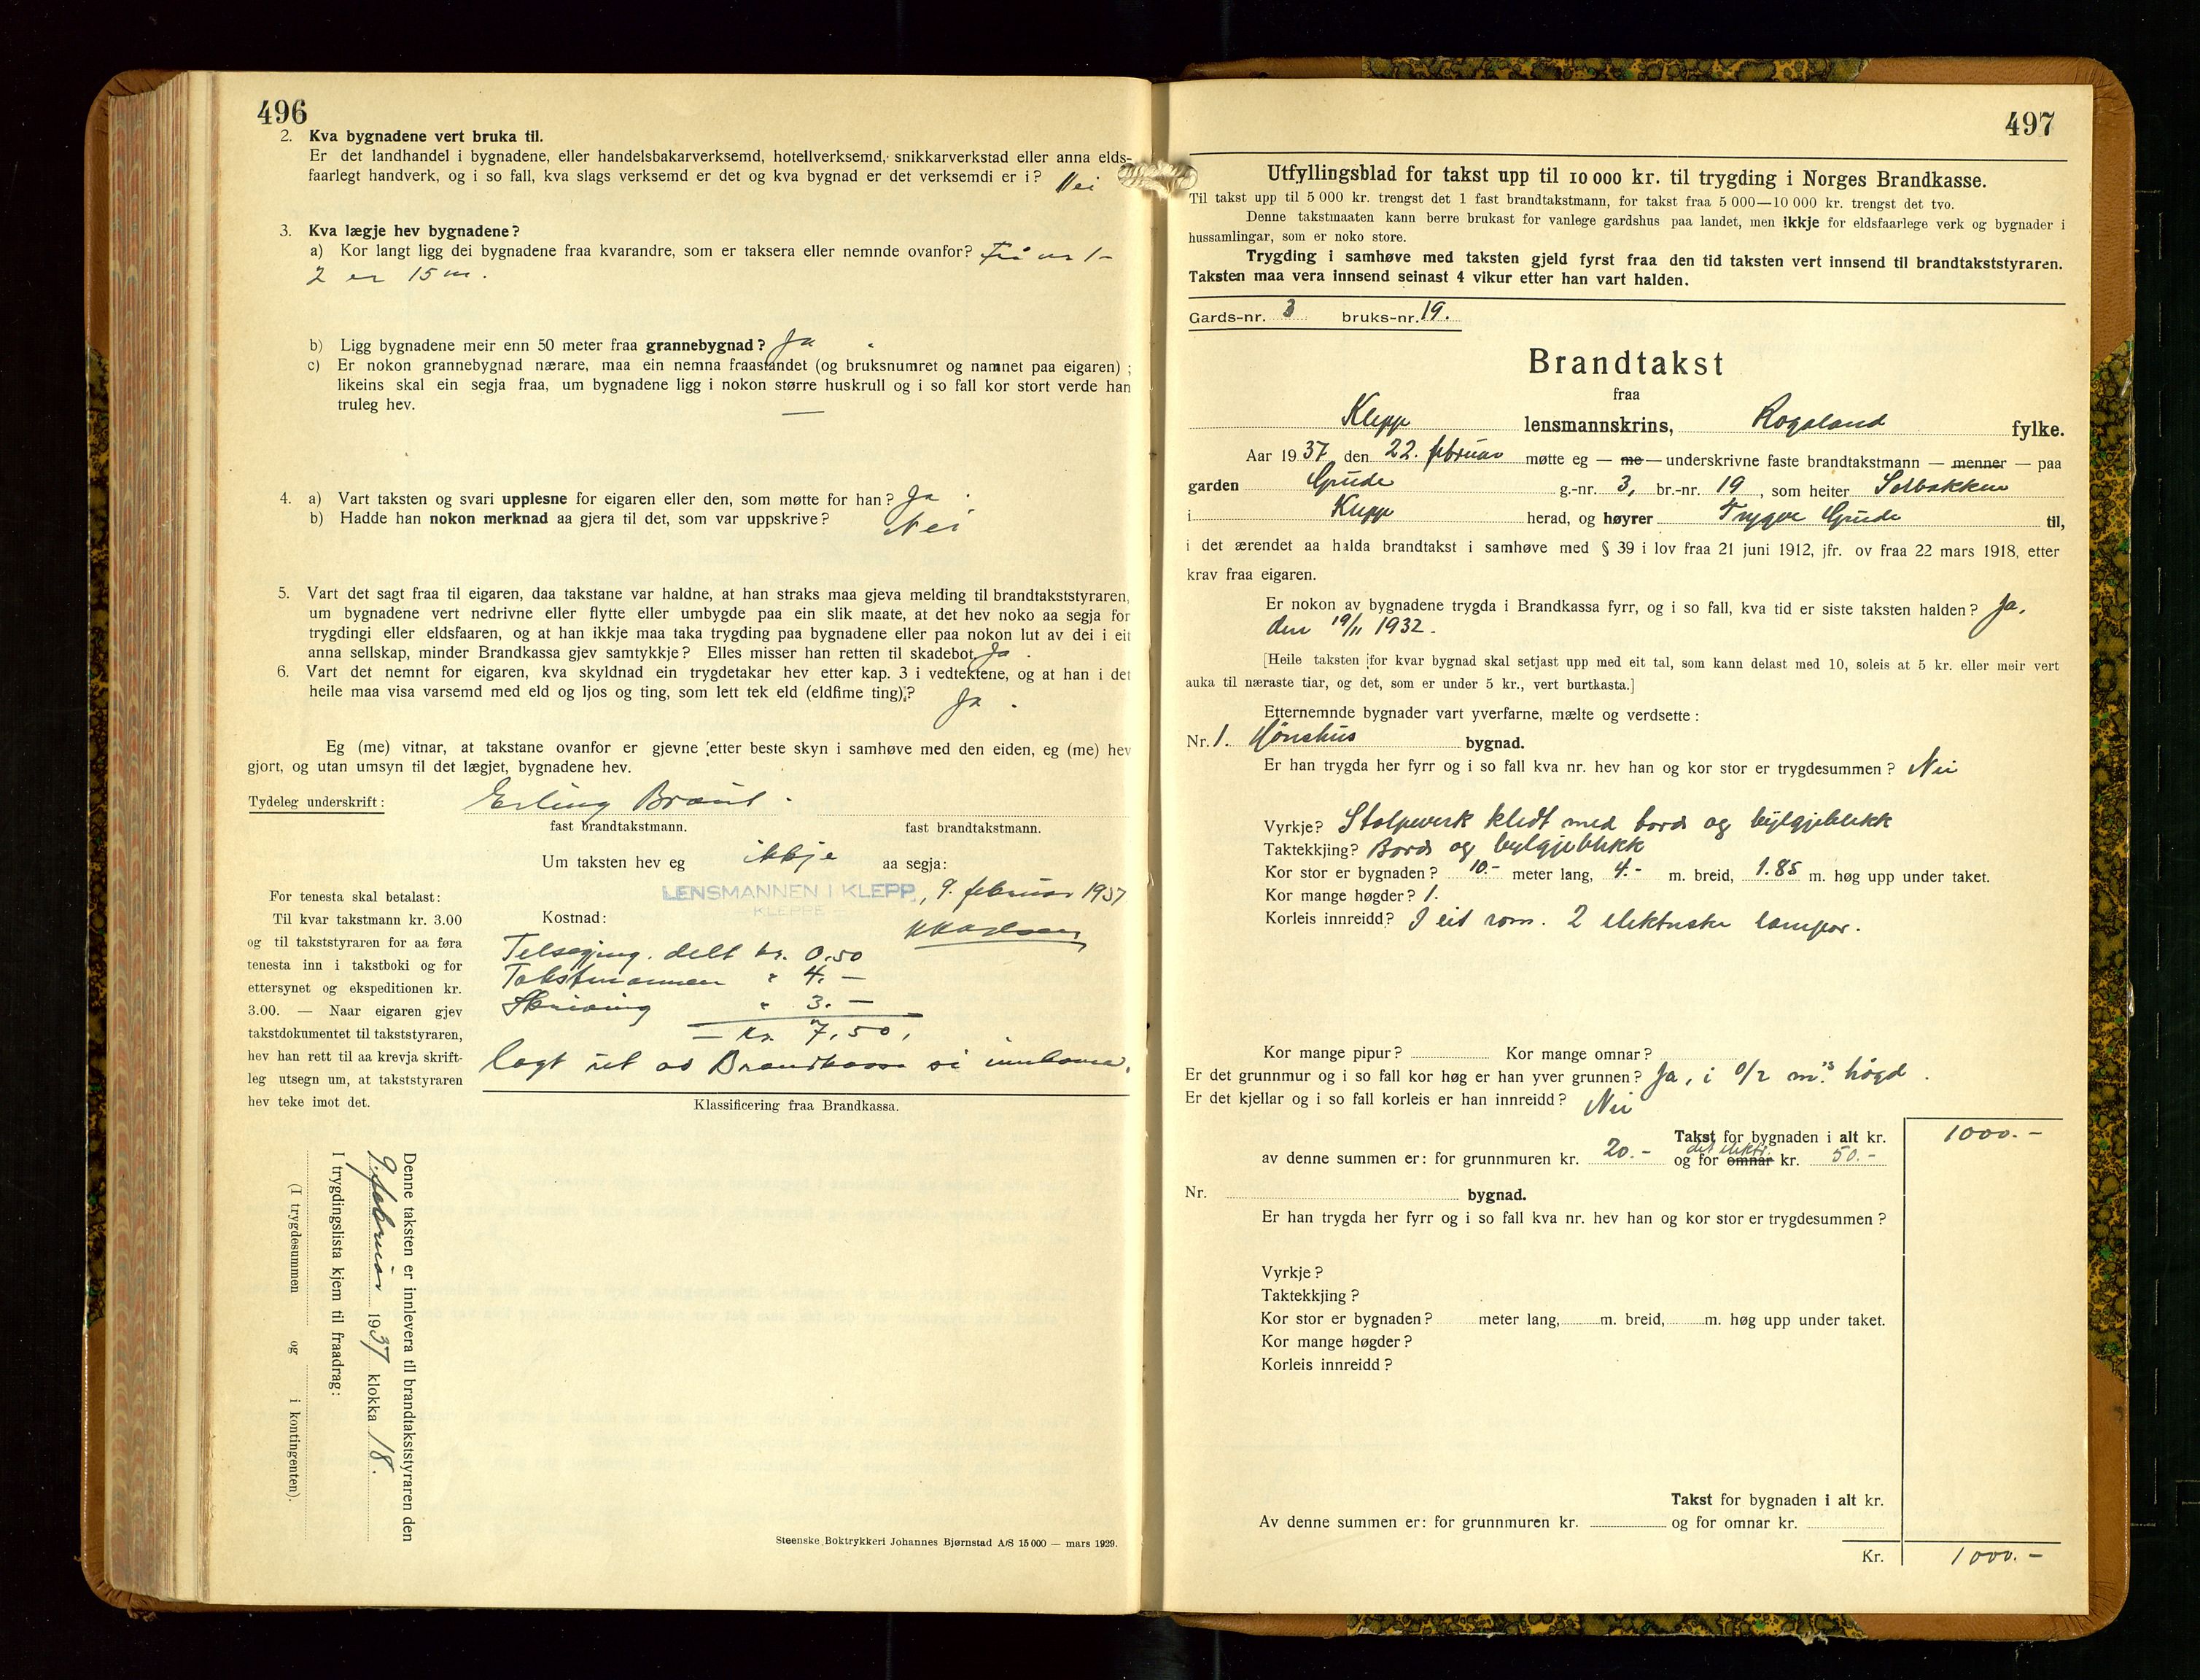 496
2. Kva bygnadene vert bruka til.
Er det landhandel i bygnadene, eller handelsbakarverksemd, hotellverksemd, snikkarverkstad eller anna elds-
faarlegt handverk, og i so fall, kva slags verksemd er det og kva bygnad er det verksemdi er i? Nei
3. Kva lægje hev bygnadene?
a) Kor langt ligg dei bygnadene fraa kvarandre, som er taksera eller nemnde ovanfor? Frå nr 1-
2 er 15 m.
b) Ligg bygnadene meir enn 50 meter fraa grannebygnad? Ja
c) Er nokon grannebygnad nærare, maa ein nemna fraastandet (og bruksnumret og namnet paa eigaren) ;
likeins skal ein segja fraa, um bygnadene ligg i nokon større huskrull og i so fall kor stort verde han
truleg hev. —
4. a) Vart taksten og svari upplesne for eigaren eller den, som møtte for han? Ja .
b) Hadde han nokon merknad aa gjera til det, som var uppskrive? Nei
5. Vart det sagt fraa til eigaren, daa takstane var haldne, at han straks maa gjeva melding til brandtakststyraren,
um bygnadene vert nedrivne eller flytte eller umbygde paa ein slik maate, at det hev noko aa segja for
trygdingi eller eldsfaaren, og at han ikkje maa taka trygding paa bygnadene eller paa nokon lut av dei i eit
anna sellskap, minder Brandkassa gjev samtykkje? Elles misser han retten til skadebot. Ja .
6. Vart det nemnt for eigaren, kva skyldnad ein trygdetakar hev etter kap. 3 i vedtektene, og at han i det
heile maa visa varsemd med eld og ljos og ting, som lett tek eld (eldfime ting)? Ja .
Eg (me) vitnar, at takstane ovanfor er gjevne etter beste skyn i samhøve med den eiden, eg (me) hev
gjort, og utan umsyn til det lægjet, bygnadene hev.
Tydeleg underskrift: Erling Braut .
fast brandtakstmann. fast brandtakstmann.
Um taksten hev eg ikkje aa segja:
LENSMANNEN I KLEPP, 9. februar 1937
KLEPPE
For tenesta skal betalast:
Til kvar takstmann kr. 3.00
og til takststyraren for aa føra
tenesta inn i takstboki og for
ettersynet og ekspeditionen kr.
3.00. — Naar eigaren gjev
takstdokumentet til takststyraren,
hev han rett til aa krevja skrift-
leg utsegn um, at takststyraren
hev teke imot det.
Kostnad:
Telsegjing. delt kr. 0.50
Takstmannen " 4. —
Skriving " 3. —
— kr. 7,50,
lagt ut av Brandkassa si innkoma.
Klassificering fraa Brandkassa.
Denne taksten er innlevera til brandtakststyraren den
9. februar 1937 klokka 18.
I trygdingslista kjem til fraadrag:
(I trygdesummen og i kontingenten).
Steenske Boktrykkeri Johannes Bjørnstad A/S 15000 — mars 1929.
497
Utfyllingsblad for takst upp til 10 000 kr. til trygding i Norges Brandkasse.
Til takst upp til 5 000 kr. trengst det 1 fast brandtakstmann, for takst fraa 5 000—10 000 kr. trengst det tvo.
Denne takstmaaten kann berre brukast for vanlege gardshus paa landet, men ikkje for eldsfaarlege verk og bygnader i
hussamlingar, som er noko store.
Trygding i samhøve med taksten gjeld fyrst fraa den tid taksten vert innsend til brandtakststyraren.
Taksten maa vera innsend seinast 4 vikur etter han vart halden.
Gards-nr. 3 bruks-nr. 19.
Brandtakst
fraa
Klepp lensmannskrins, Rogaland fylke.
Aar 1937 den 22. februar møtte eg — me — underskrivne faste brandtakstmann — menner — paa
garden Grude g.-nr. 3, br.-nr. 19, som heiter Solbakken
i Klepp herad, og høyrer Trygve Grude til,
i det ærendet aa halda brandtakst i samhøve med § 39 i lov fraa 21 juni 1912, jfr. ov fraa 22 mars 1918, etter
krav fraa eigaren.
Er nokon av bygnadene trygda i Brandkassa fyrr, og i so fall, kva tid er siste taksten halden? Ja,
den 19/11 1932.
[Heile taksten for kvar bygnad skal setjast upp med eit tal, som kann delast med 10, soleis at 5 kr. eller meir vert
auka til næraste tiar, og det, som er under 5 kr., vert burtkasta.]
Etternemnde bygnader vart yverfarne, mælte og verdsette :
Nr. 1. Hönshus bygnad.
Er han trygda her fyrr og i so fall kva nr. hev han og kor stor er trygdesummen? Nei
Vyrkje? Stolpeverk kledt med bord og bylgjeblikk
Taktekkjing? Bord og bylgjeblikk
Kor stor er bygnaden? 10.- meter lang, 4.- m. breid, 1.85 m. høg upp under taket.
Kor mange høgder? 1.
Korleis innreidd? I eit rom. 2 elektriske lampor.
Kor mange pipur? Kor mange omnar?
Er det grunnmur og i so fall kor høg er han yver grunnen? Ja, i 0/2 m's högd .
Er det kjellar og i so fall korleis er han innreidd? Nei
Takst for bygnaden i alt kr. 1000.-
av denne summen er: for grunnmuren kr. 20.- og for omnar det elektr. kr. 50.-
Nr. bygnad.
Er han trygda her fyrr og i so fall kva nr. hev han og kor stor er trygdesummen?
Vyrkje?
Taktekkjing?
Kor stor er bygnaden? meter lang, m. breid, m. høg upp under taket.
Kor mange høgder?
Korleis innreidd?
Takst for bygnaden i alt kr.
Av denne summen er: for grunnmuren kr. og for omnar kr.
Kr. 1000.-